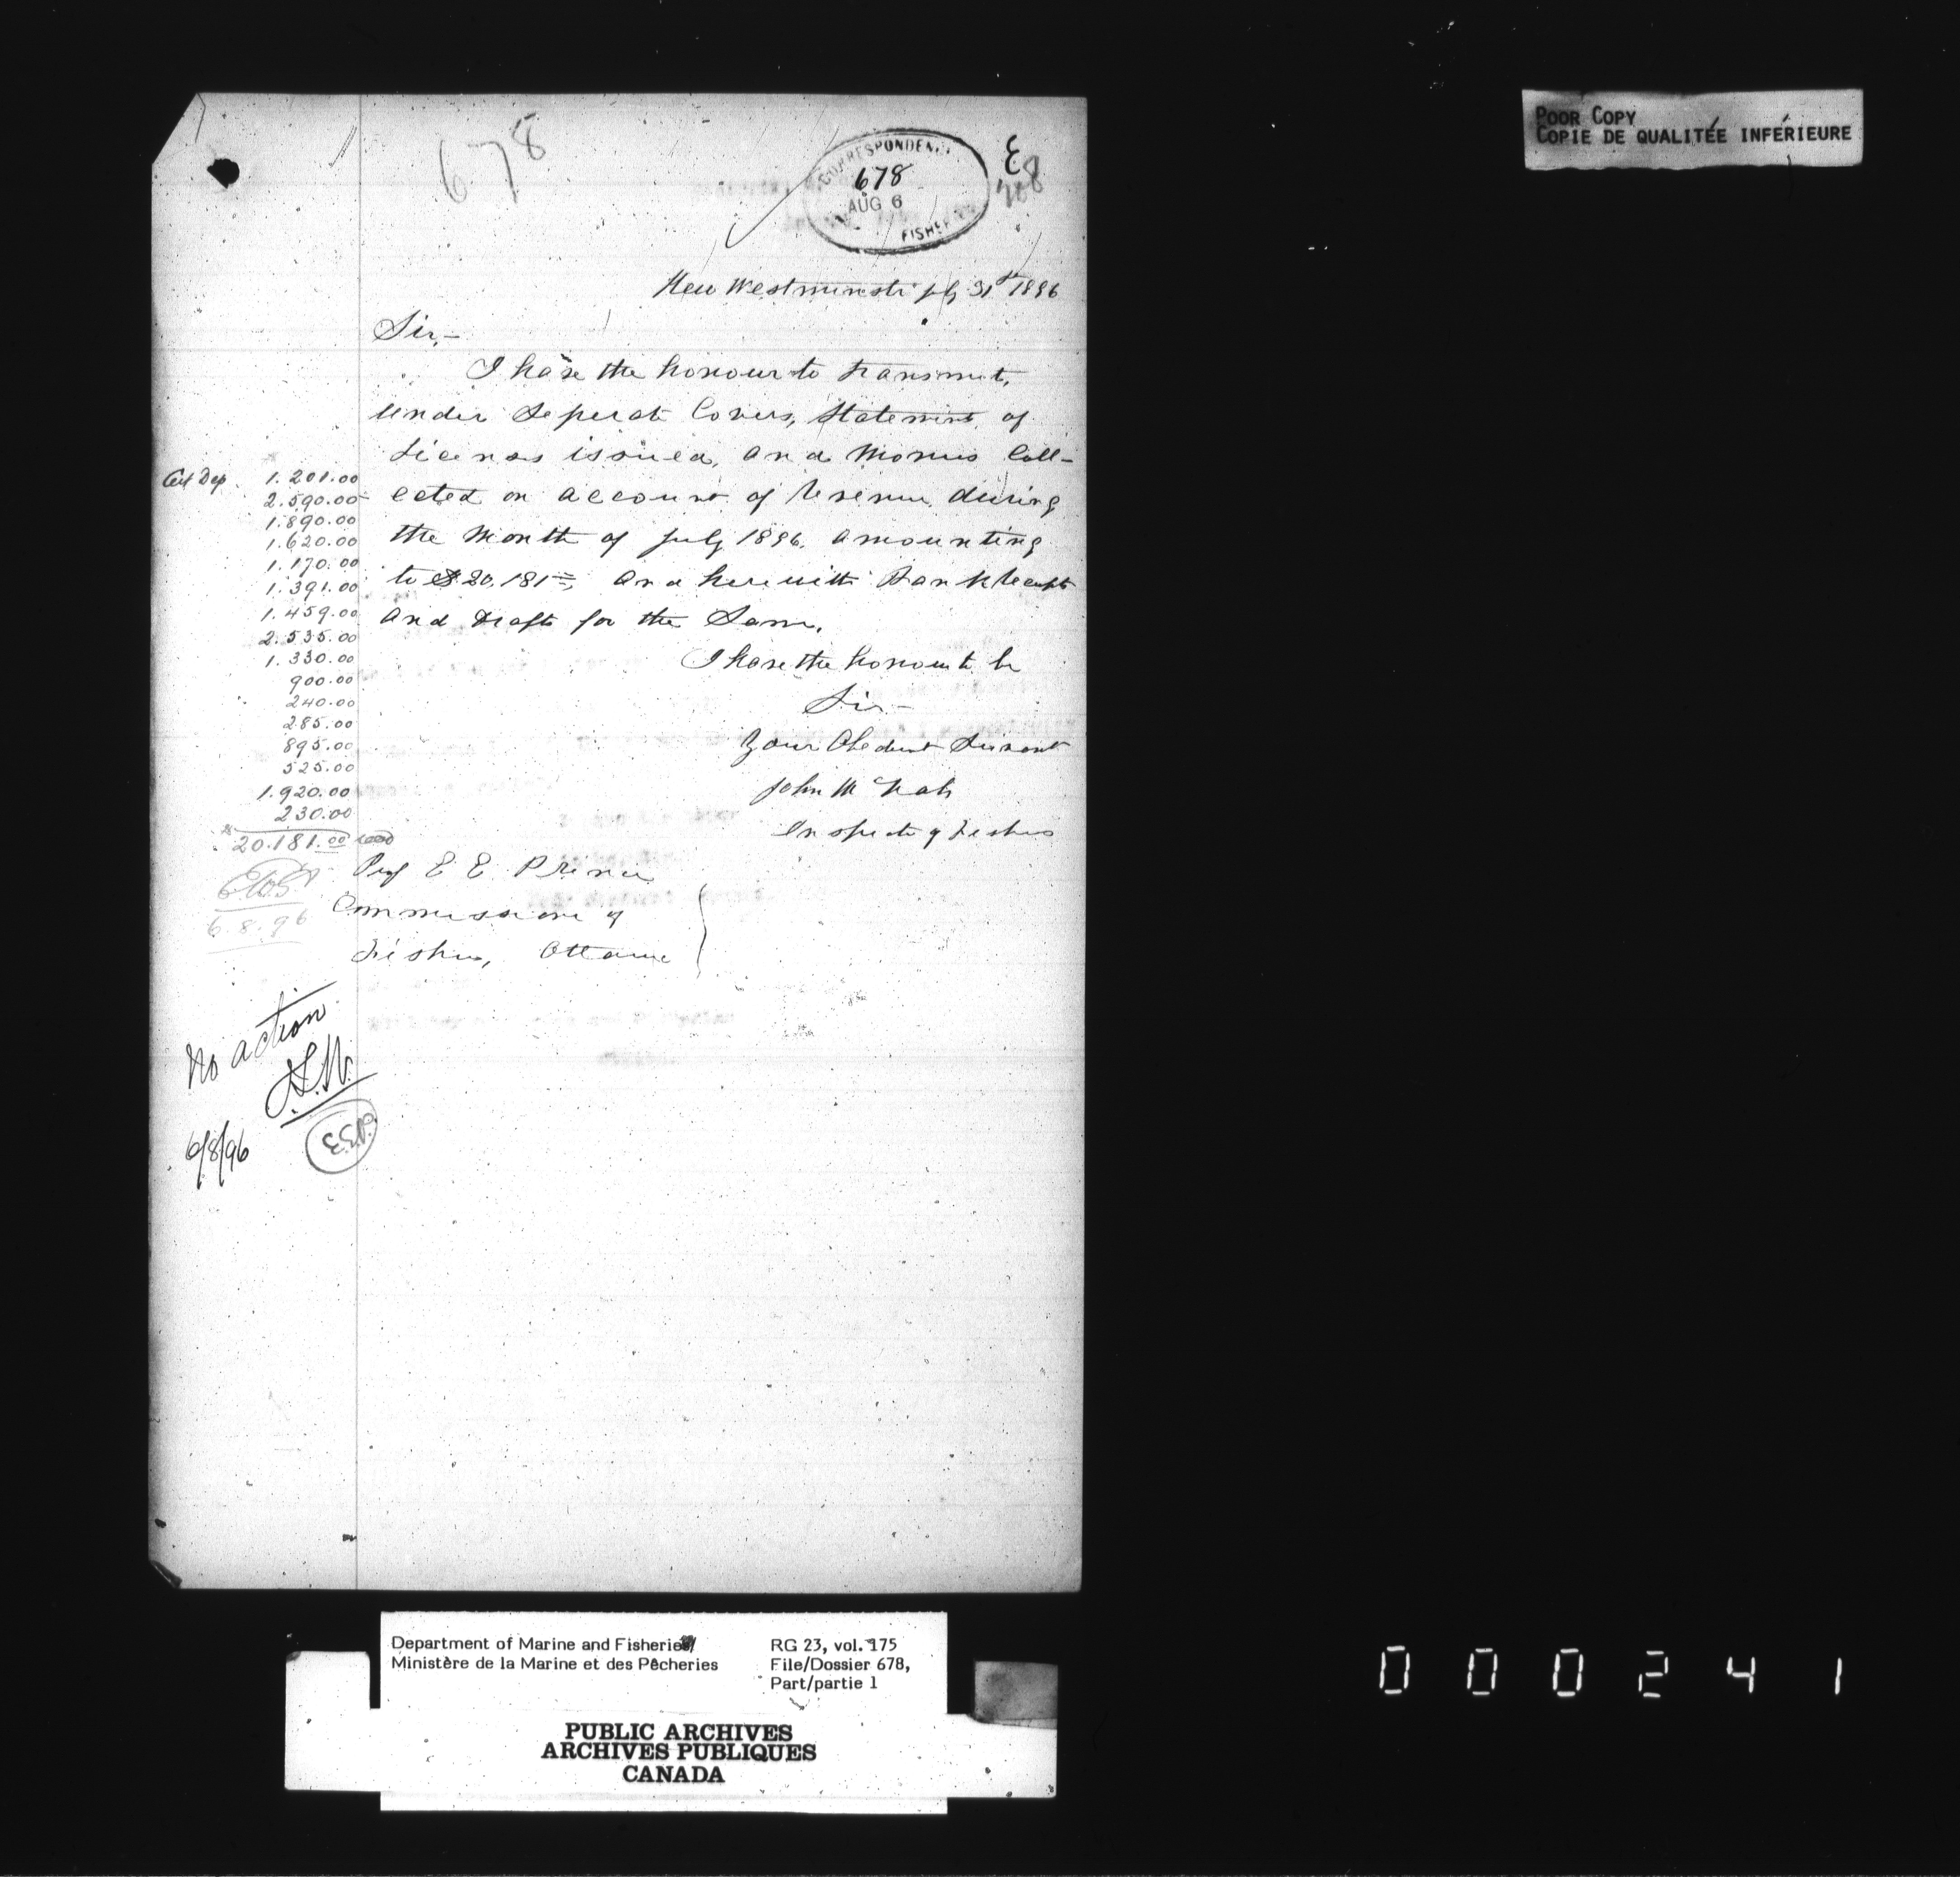 POOR COPY
COPIE DE QUALITÉE INFÉRIEURE
678
CORRESPONDENCE
678
AUG 6
FISHERIES
New Westminster July 31st 1896
Sir,-
I have the honour to transmit,
under Seperate Covers, Statement of
Licenses issued, and Monies Coll-
ected on account of Revenue during
the Month of July 1896, amounting
to $20,181=, and herewith Bank Receipts
and Draft for the Same.
I have the honour to be
Sir-
Your Obedient Servant
John McNab
Inspector of Fisheries
Cert Dep. 1.201.00
2.590.00
1.890.00
1.620.00
1.170.00
1.391.00
1.459.00
2.535.00
1.330.00
900.00
240.00
285.00
895.00
525.00
1.920.00
230.00
20.181.00
6.8.96
Prof E E Prince
Commissioner of
Fisheries, Ottawa
No action
6/8/96
Department of Marine and Fisheries
Ministère de la Marine et des Pêcheries
RG 23, vol. 175
File/Dossier 678,
Part/partie 1
PUBLIC ARCHIVES
ARCHIVES PUBLIQUES
CANADA
000241